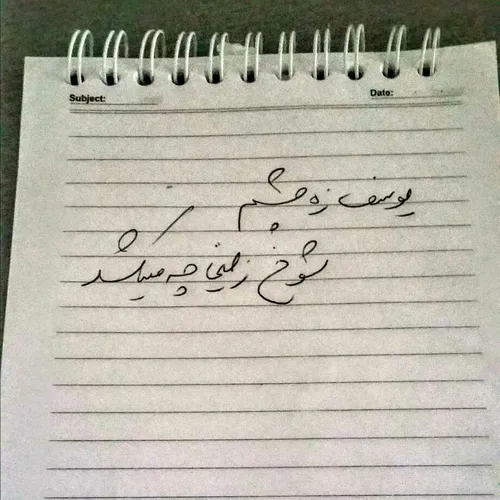 Subject:
Date:
یوسف ز چشم
شوخ زلیخا چه میکشد